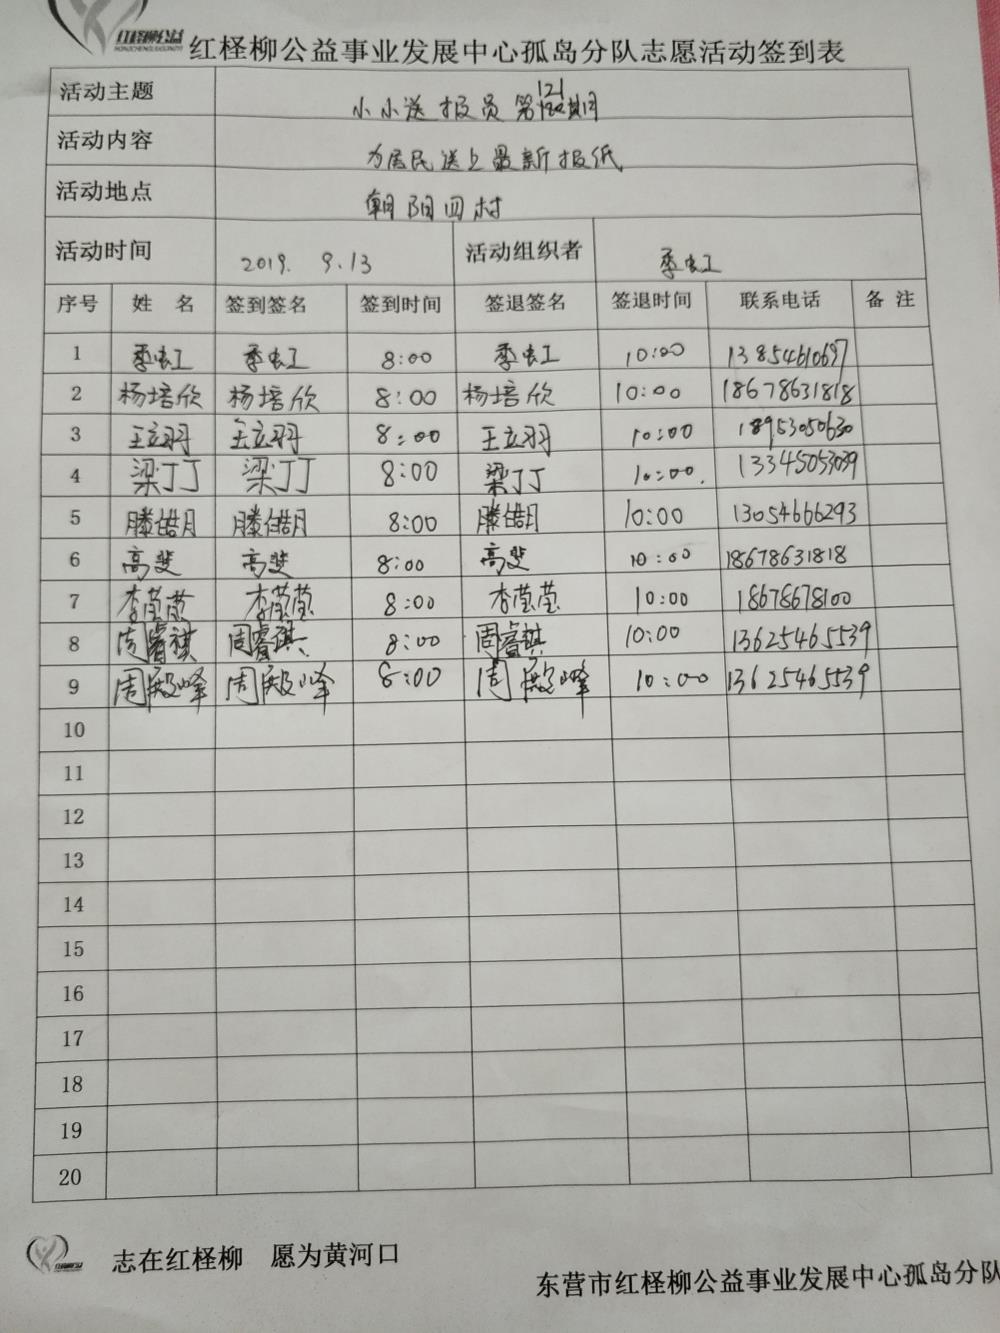 红柽柳公益事业发展中心孤岛分队志愿活动签到表
活动主题 小小送报员第121期
活动内容 为居民送上最新报纸
活动地点 朝阳四村
活动时间 2019. 9.13 活动组织者 季虹
序号 姓 名 签到签名 签到时间 签退签名 签退时间 联系电话 备 注
1 季虹 季虹 8:00 季虹 10:00 13854610697
2 杨培欣 杨培欣 8:00 杨培欣 10:00 18678631818
3 王立羽 王立羽 8:00 王立羽 10:00 18953050630
4 梁丁丁 梁丁丁 8:00 梁丁丁 10:00. 13345053039
5 滕皓月 滕皓月 8:00 滕皓月 10:00 13054666293
6 高斐 高斐 8:00 高斐 10:00 18678631818
7 李莹莹 李莹莹 8:00 李莹莹 10:00 18678678100
8 周睿祺 周睿祺 8:00 周睿祺 10:00 13625465539
9 周殿峰 周殿峰 8:00 周殿峰 10:00 13625465539
10
11
12
13
14
15
16
17
18
19
20
志在红柽柳 愿为黄河口
东营市红柽柳公益事业发展中心孤岛分队